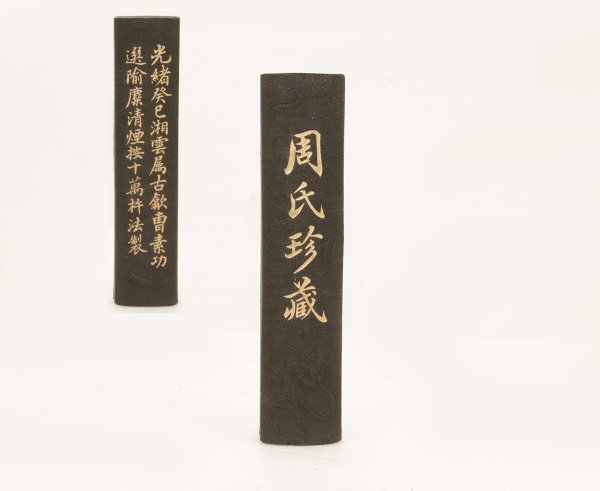 光緒癸巳湘雲属古歙曹素功
選隃麋清煙按十萬杵法製
周氏珍藏